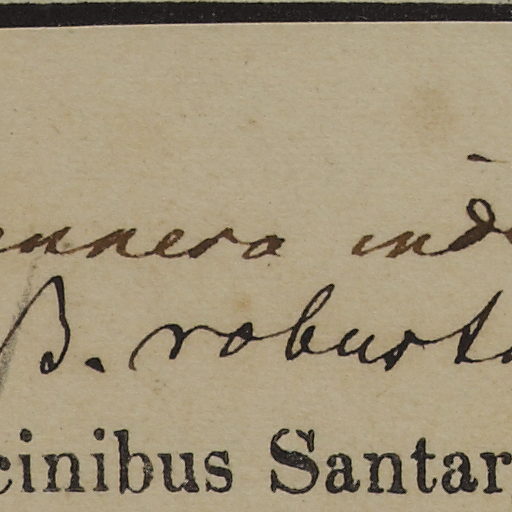 unnera ind
β. robusta
cinibus Santar